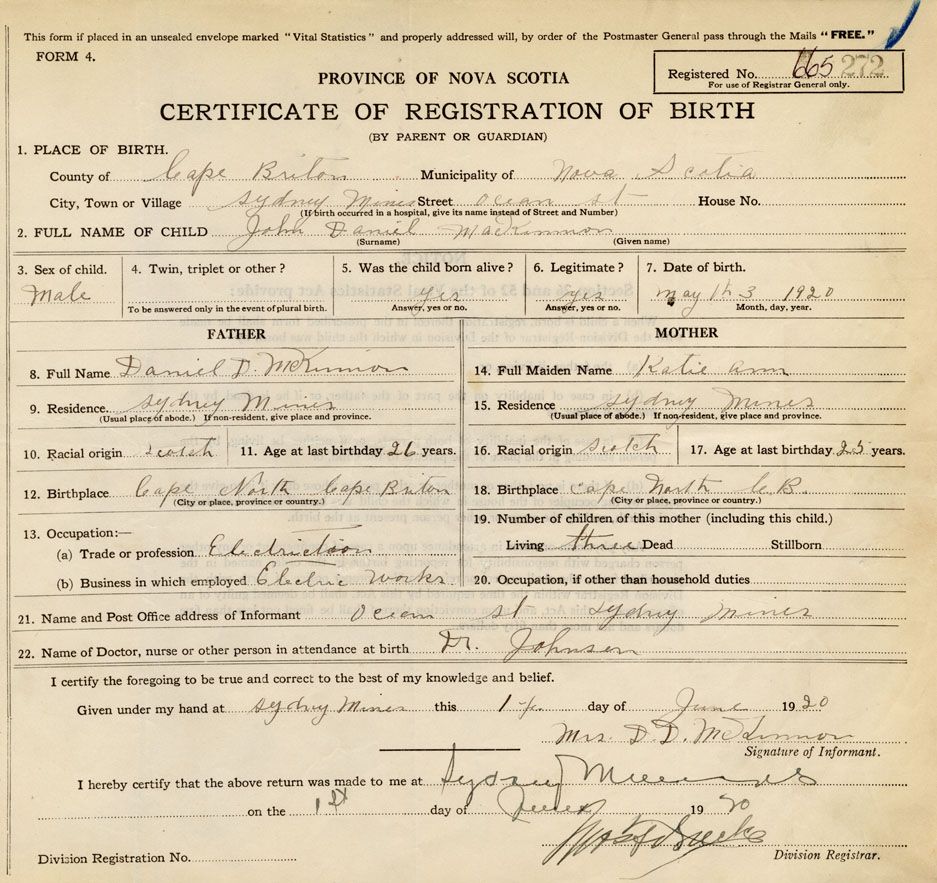 This form if placed in an unsealed envelope marked "Vital Statistics" and properly addressed will, by order of the Postmaster General pass through the Mails "FREE."
FORM 4.
Registered No. 665 272
For use of Registrar General only.
PROVINCE OF NOVA SCOTIA
CERTIFICATE OF REGISTRATION OF BIRTH
(BY PARENT OR GUARDIAN)
1. PLACE OF BIRTH.
County of Cape Briton Municipality of Nova Scotia
City, Town or Village Sydney Mines Street Ocean st House No.
(If birth occurred in a hospital, give its name instead of Street and Number)
2. FULL NAME OF CHILD John Daniel MacKinnon
(Surname) (Given name)
3. Sex of child. 4. Twin, triplet or other? 5. Was the child born alive? 6. Legitimate? 7. Date of birth.
Male yes yes may 3 1920
To be answered only in the event of plural birth. Answer, yes or no. Answer, yes or no. Month, day, year.
FATHER MOTHER
8. Full Name Daniel D. McKinnon 14. Full Maiden Name Katie ann
9. Residence Sydney Mines 15. Residence Sydney Mines
(Usual place of abode.) If non-resident, give place and province. (Usual place of abode.) If non-resident, give place and province.
10. Racial origin scotch 11. Age at last birthday 26 years. 16. Racial origin scotch 17. Age at last birthday 25 years.
12. Birthplace Cape North Cape Briton 18. Birthplace Cape North C.B.
(City or place, province or country.) (City or place, province or country.)
19. Number of children of this mother (including this child.)
13. Occupation:—
Living three Dead Stillborn
(a) Trade or profession Electrician
(b) Business in which employed Electric Works 20. Occupation, if other than household duties
21. Name and Post Office address of Informant Ocean st Sydney Mines
22. Name of Doctor, nurse or other person in attendance at birth Dr. Johnson
I certify the foregoing to be true and correct to the best of my knowledge and belief.
Given under my hand at Sydney Mines this day of June 1920
Mrs. D. D. McKinnon
Signature of Informant.
I hereby certify that the above return was made to me at Sydney Mines
on the 1st day of June 1920
Division Registration No. Division Registrar.